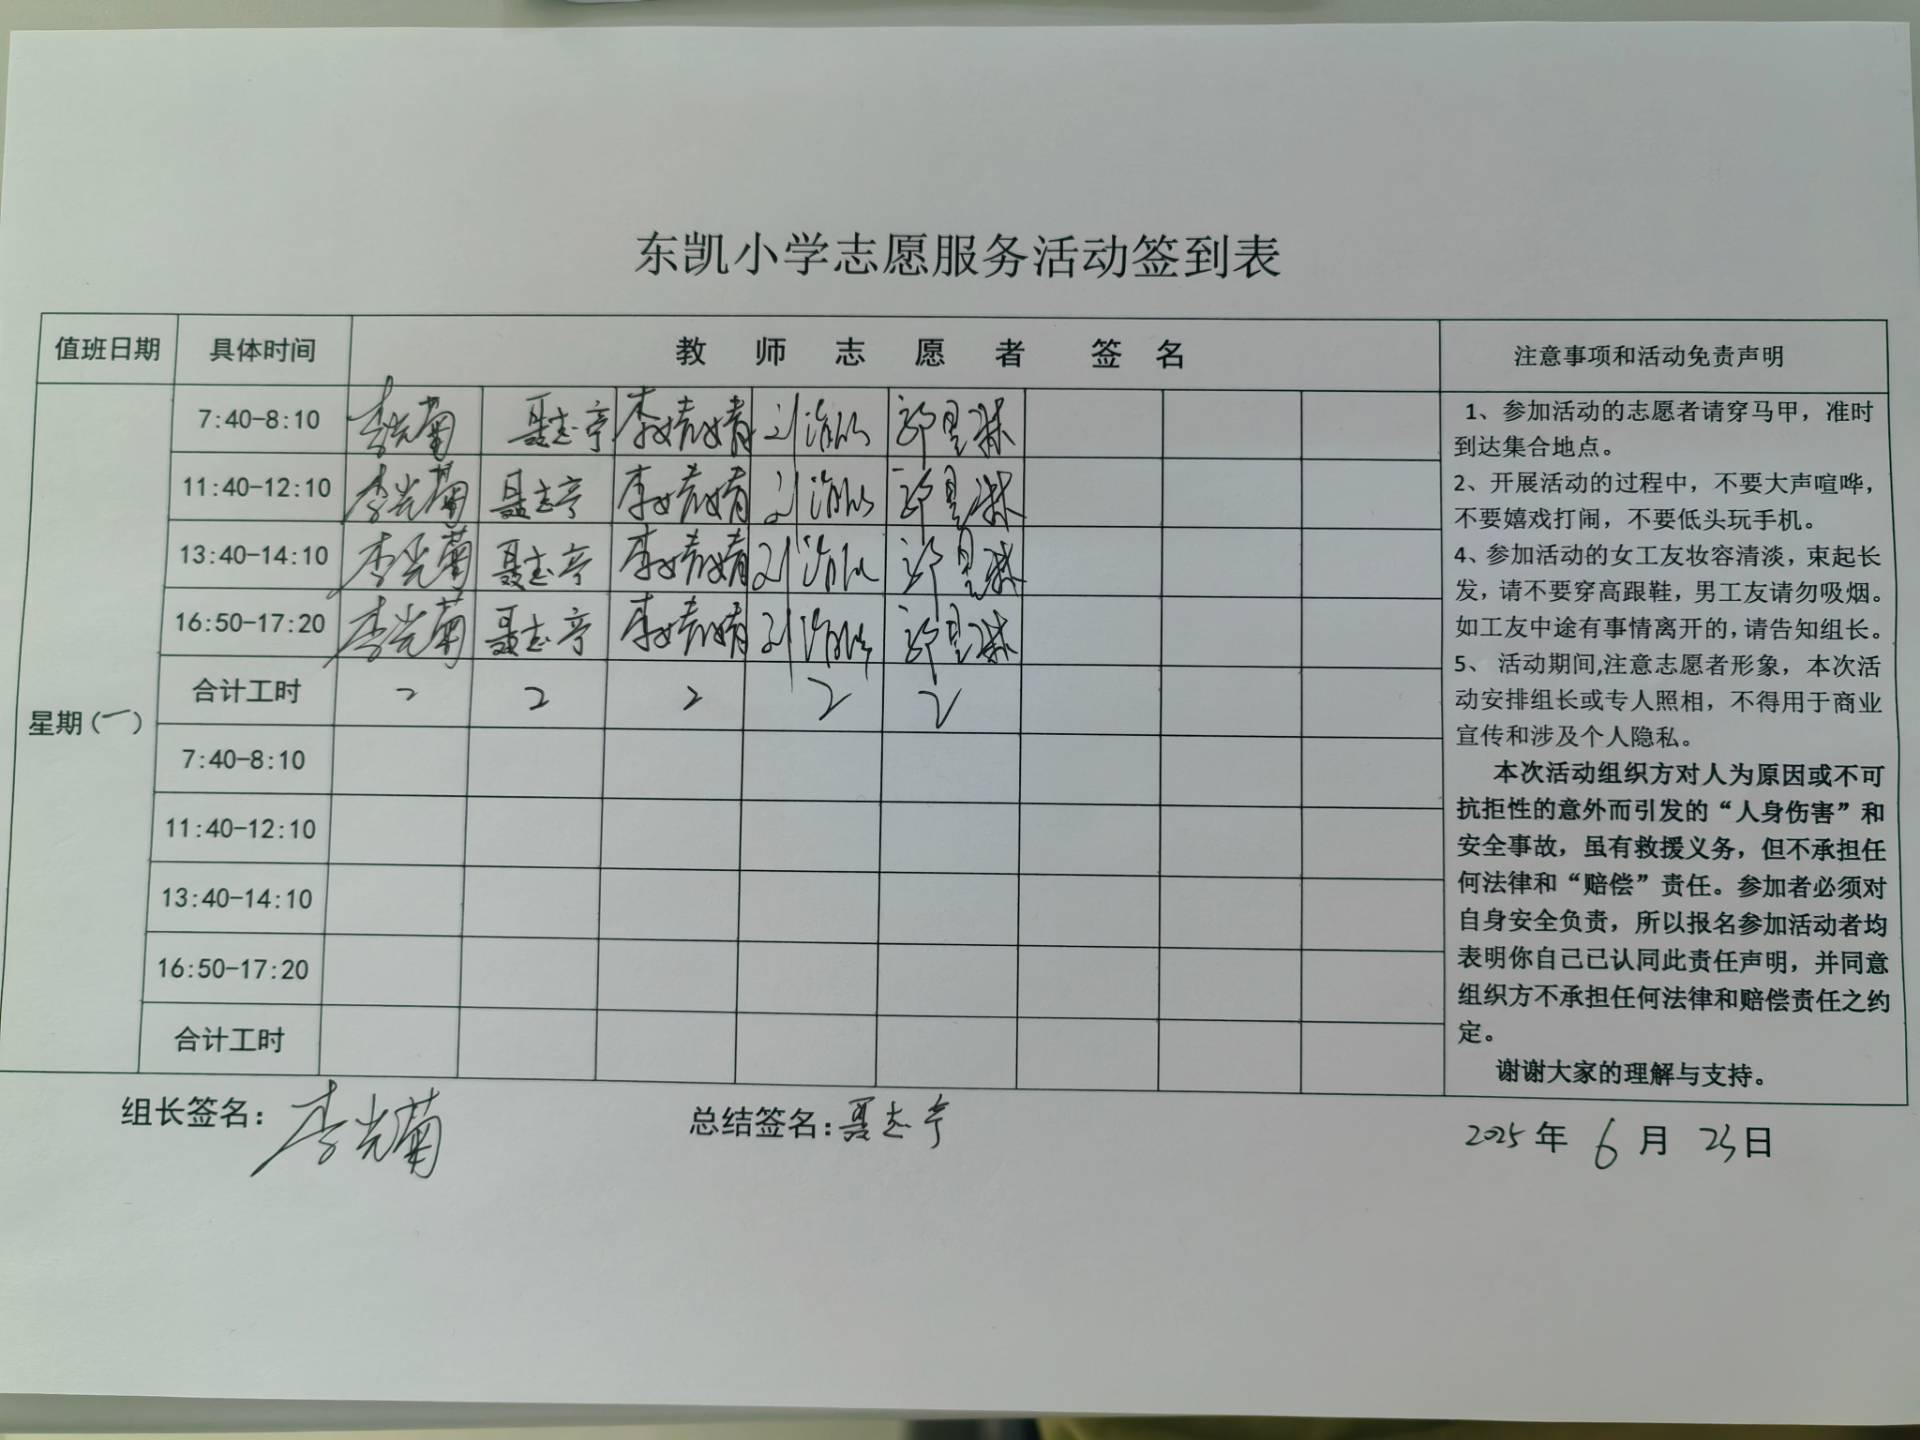 东凯小学志愿服务活动签到表
值班日期 具体时间 教师志愿者 签名 注意事项和活动免责声明
星期(一)
7:40-8:10 李光菊 聂志亭 李婧婧
11:40-12:10 李光菊 聂志亭 李婧婧
13:40-14:10 李光菊 聂志亭 李婧婧
16:50-17:20 李光菊 聂志亭 李婧婧
合计工时 2 2 2 2 2
7:40-8:10
11:40-12:10
13:40-14:10
16:50-17:20
合计工时
1、参加活动的志愿者请穿马甲，准时
到达集合地点。
2、开展活动的过程中，不要大声喧哗，
不要嬉戏打闹，不要低头玩手机。
4、参加活动的女工友妆容清淡，束起长
发，请不要穿高跟鞋，男工友请勿吸烟。
如工友中途有事情离开的，请告知组长。
5、 活动期间,注意志愿者形象，本次活
动安排组长或专人照相，不得用于商业
宣传和涉及个人隐私。
本次活动组织方对人为原因或不可
抗拒性的意外而引发的“人身伤害”和
安全事故，虽有救援义务，但不承担任
何法律和“赔偿”责任。参加者必须对
自身安全负责，所以报名参加活动者均
表明你自己已认同此责任声明，并同意
组织方不承担任何法律和赔偿责任之约
定。
谢谢大家的理解与支持。
组长签名：李光菊 总结签名：聂志亭 2025年 6月 23日